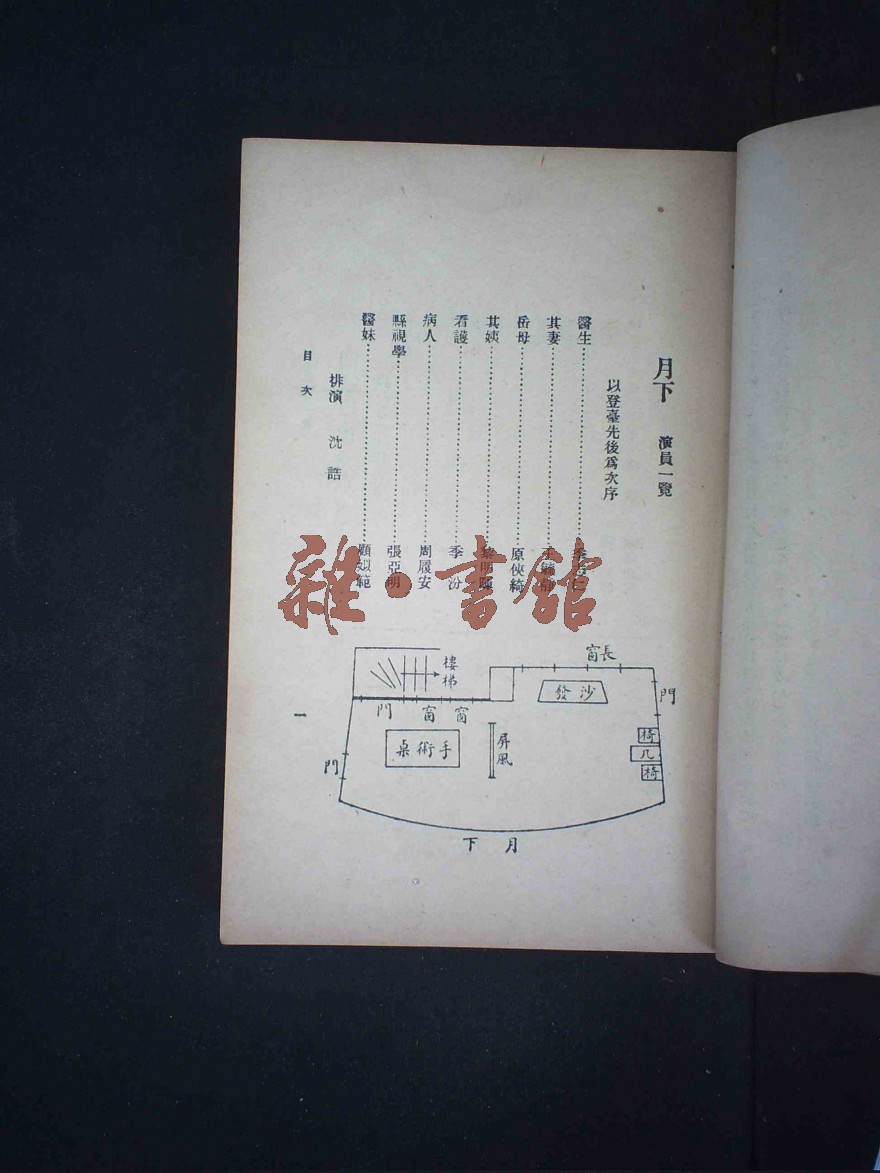 月下 演員一覽
以登臺先後爲次序
醫生
其妻
岳母⋯⋯原俠綺
其姨⋯⋯黎明暉
看護⋯⋯季汾
病人⋯⋯周履安
縣視學⋯⋯張亞明
醫妹⋯⋯顧姒範
排演 沈誥
目次
一
長窗
樓梯
沙發
門
門 窗 窗
手術桌
屏風
椅
几
椅
門
月下
雜·書館